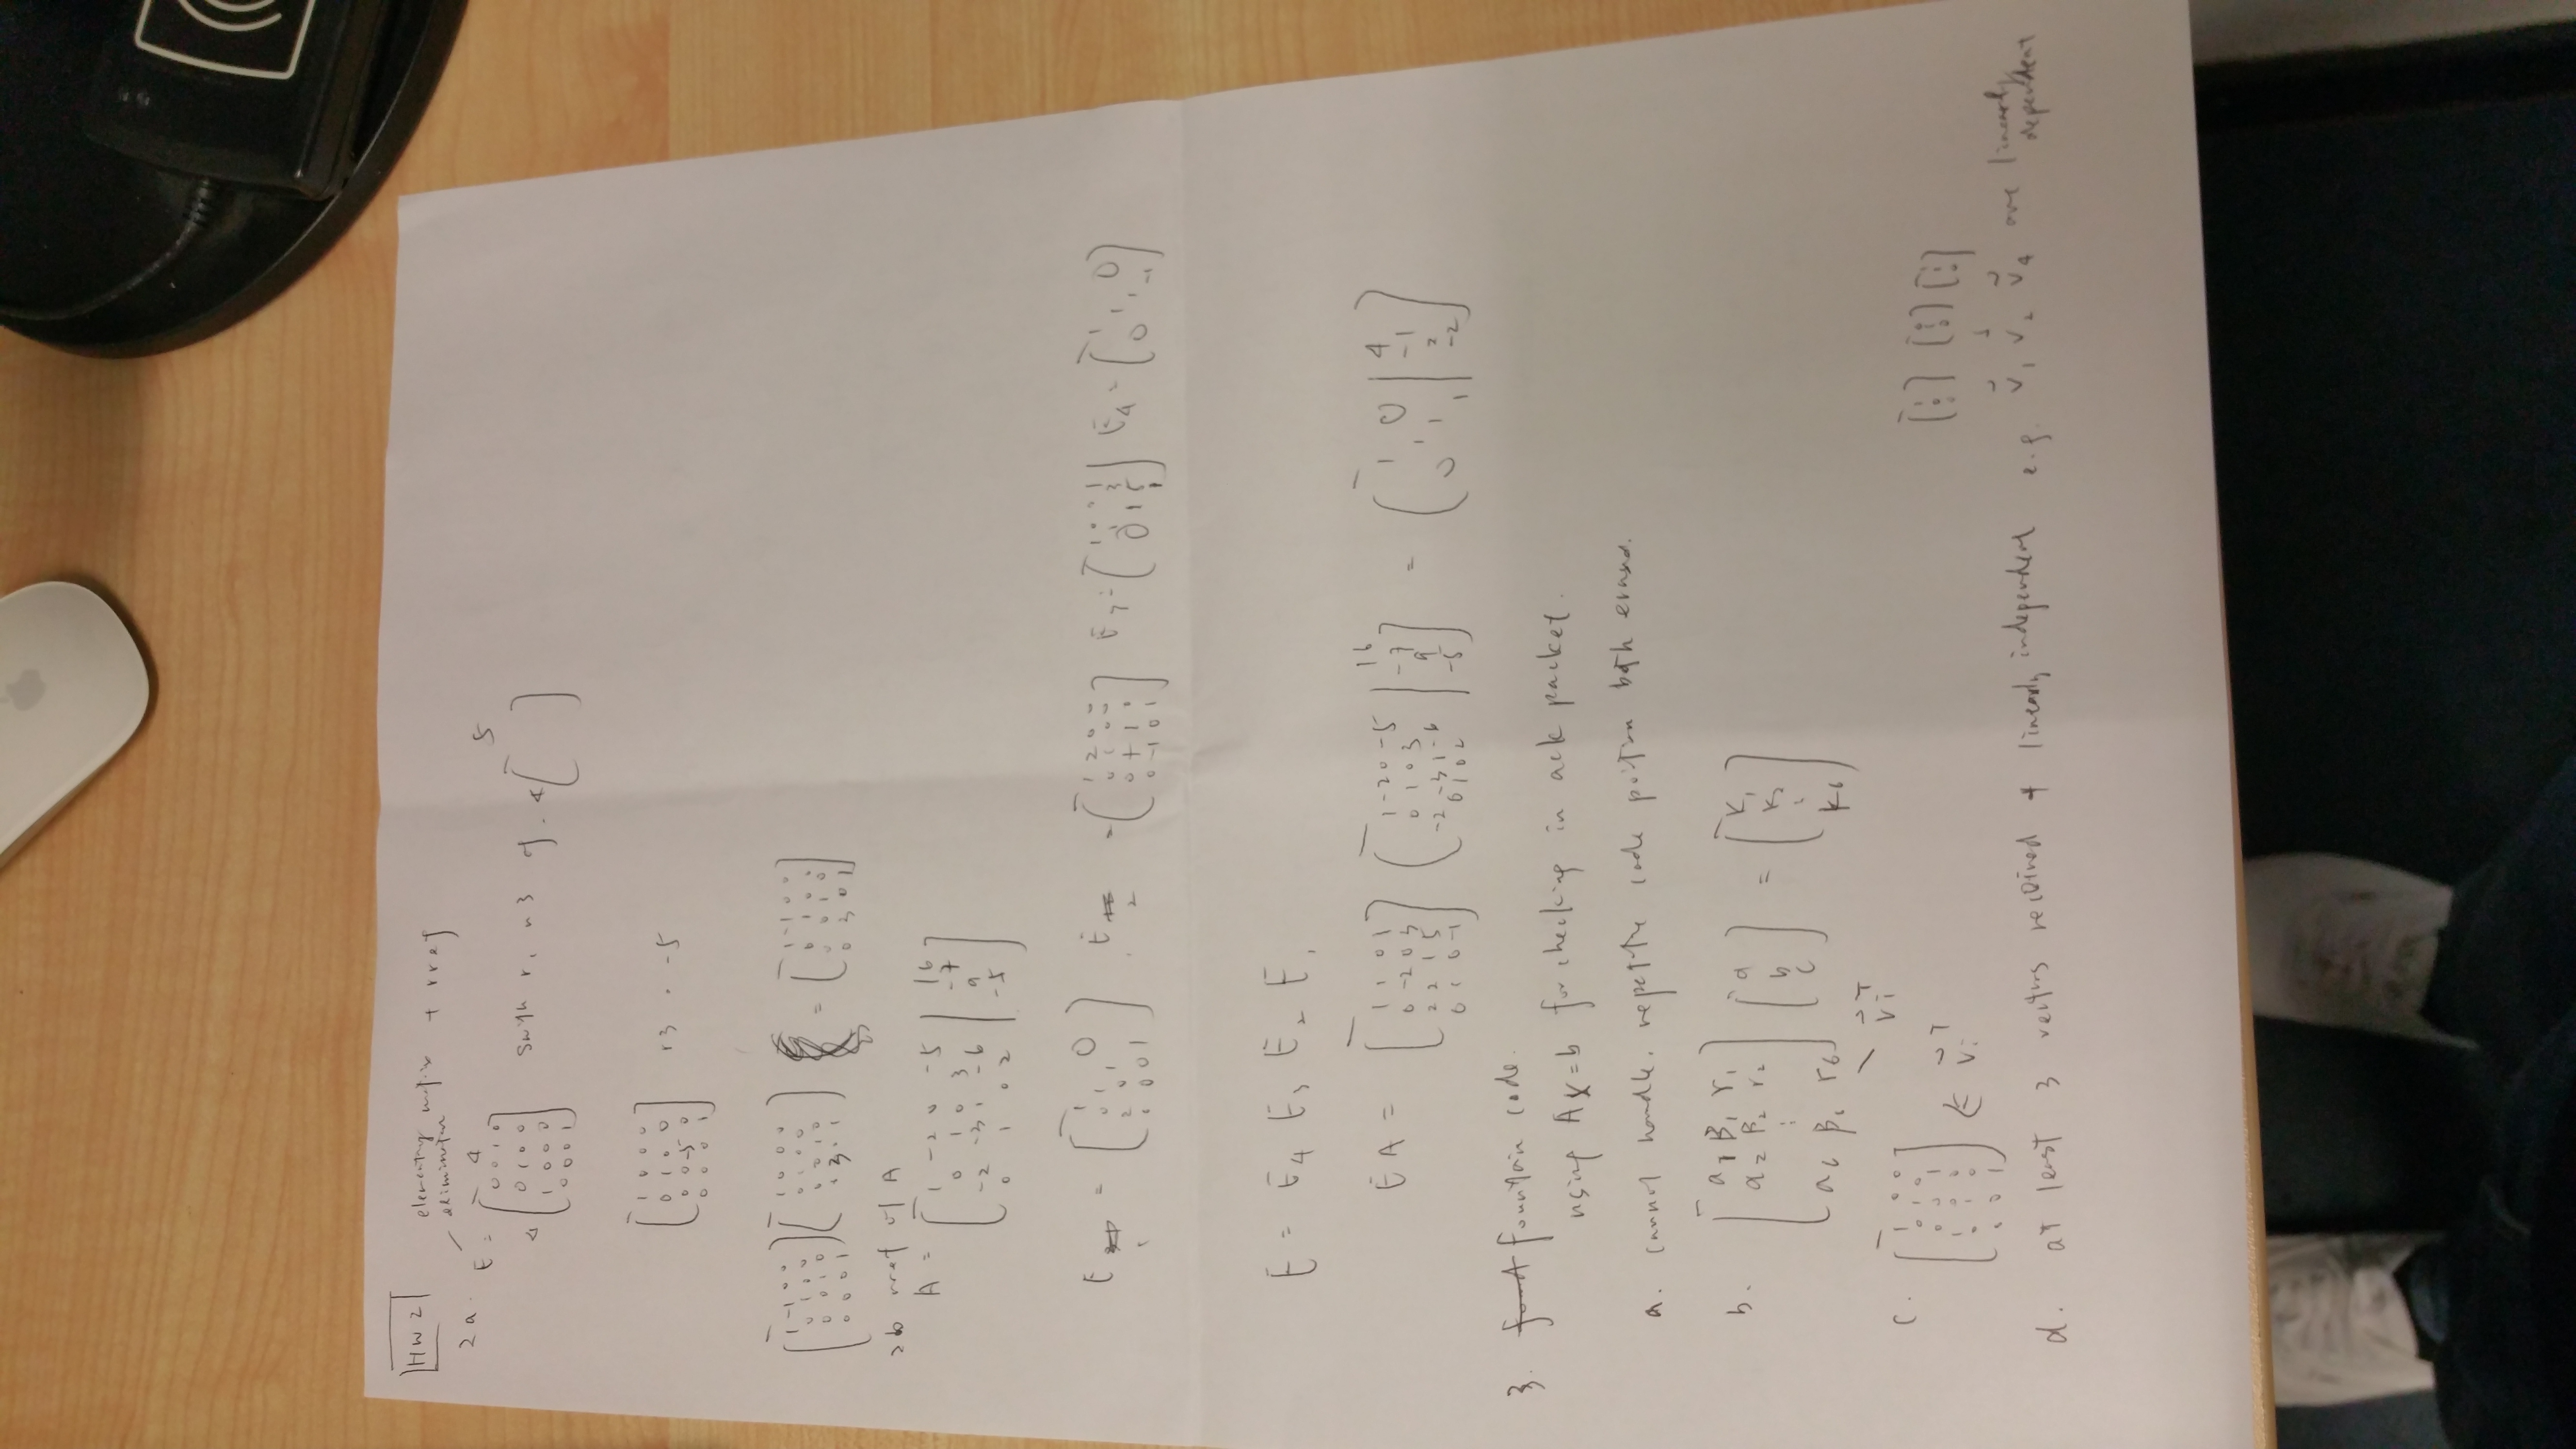 HW 2
elementary matrix + rref
elimination
2a. E = 4
4 [ 0 0 1 0
0 1 0 0
1 0 0 0
0 0 0 1 ] r1 n 3 of. 4 [ ] 5
[ 1 0 0 0
0 1 0 0
0 0 -5 0
0 0 0 1 ] r3 · -5
[ 1 -1 0 0
0 1 0 0
0 0 1 0
0 0 0 1 ] [ 1 0 0 0
0 1 0 0
0 0 1 0
0 3 0 1 ] = [ 1 -1 0 0
0 1 0 0
0 0 1 0
0 3 0 1 ]
2b rref of A
A = [ 1 -2 0 -5 | 16
0 1 0 3 | -7
-2 -3 1 -6 | 9
0 1 0 2 | -5 ]
E1 = [ 1 0
0 1
2 0 1
0 0 0 1 ] , E2 = [ 1 2 0 0
0 1 0 0
0 + 1 0
0 -1 0 1 ] E3 = [ ] E4 = [ 1 0
1
0 1 -1 ]
E = E4 E3 E2 E1
EA = [ 1 1 0 1
0 -2 0 3
2 2 1 5
0 1 0 -1 ] [ 1 -2 0 -5 | 16
0 1 0 3 | -7
-2 -3 1 -6 | 9
0 1 0 2 | -5 ] = [ 1 0 | 4
1 | -1
0 1 | 2
1 | -2 ]
3. fountain code.
using Ax=b for checking in ack packet.
a. cannot handle. repetitive code position both erased.
b. [ α1 β1 γ1
α2 β2 γ2
⋮
α6 β6 γ6 ] [ a
b
c ] = [ K1
K2
⋮
K6 ]
v⃗iT
c. [ 1 0 0
0 1 0
0 0 1
1 0 0
0 1 0
0 0 1 ] ∈ v⃗iT
d. at least 3 vectors received + linearly independent e.g. v⃗1 v⃗2 v⃗4 are linearly
dependent